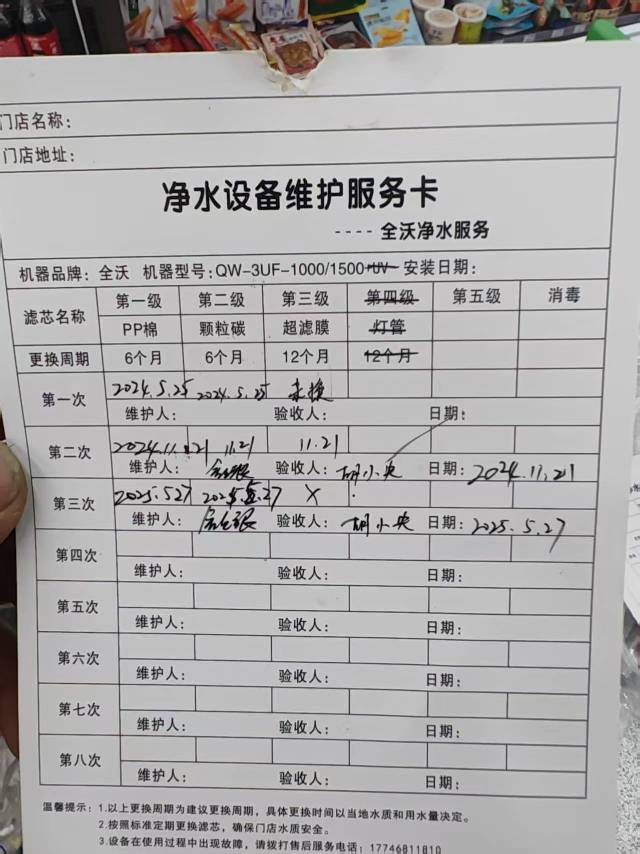 门店名称:
门店地址:
净水设备维护服务卡
---- 全沃净水服务
机器品牌: 全沃 机器型号:QW-3UF-1000/1500+UV 安装日期:
滤芯名称 第一级 第二级 第三级 第四级 第五级 消毒
PP棉 颗粒碳 超滤膜 灯管
更换周期 6个月 6个月 12个月 12个月
第一次 2024.5.25 2024.5.25 未换
维护人: 验收人: 日期:
第二次 2024.11.21 11.21 11.21
维护人: 验收人: 胡小央 日期: 2024.11.21
第三次 2025.5.27 2025.5.27 X
维护人: 验收人: 胡小央 日期: 2025.5.27
第四次
维护人: 验收人: 日期:
第五次
维护人: 验收人: 日期:
第六次
维护人: 验收人: 日期:
第七次
维护人: 验收人: 日期:
第八次
维护人: 验收人: 日期:
温馨提示: 1.以上更换周期为建议更换周期，具体更换时间以当地水质和用水量决定。
2.按照标准定期更换滤芯，确保门店水质安全。
3.设备在使用过程中出现故障，请拨打售后服务电话: 17746811810